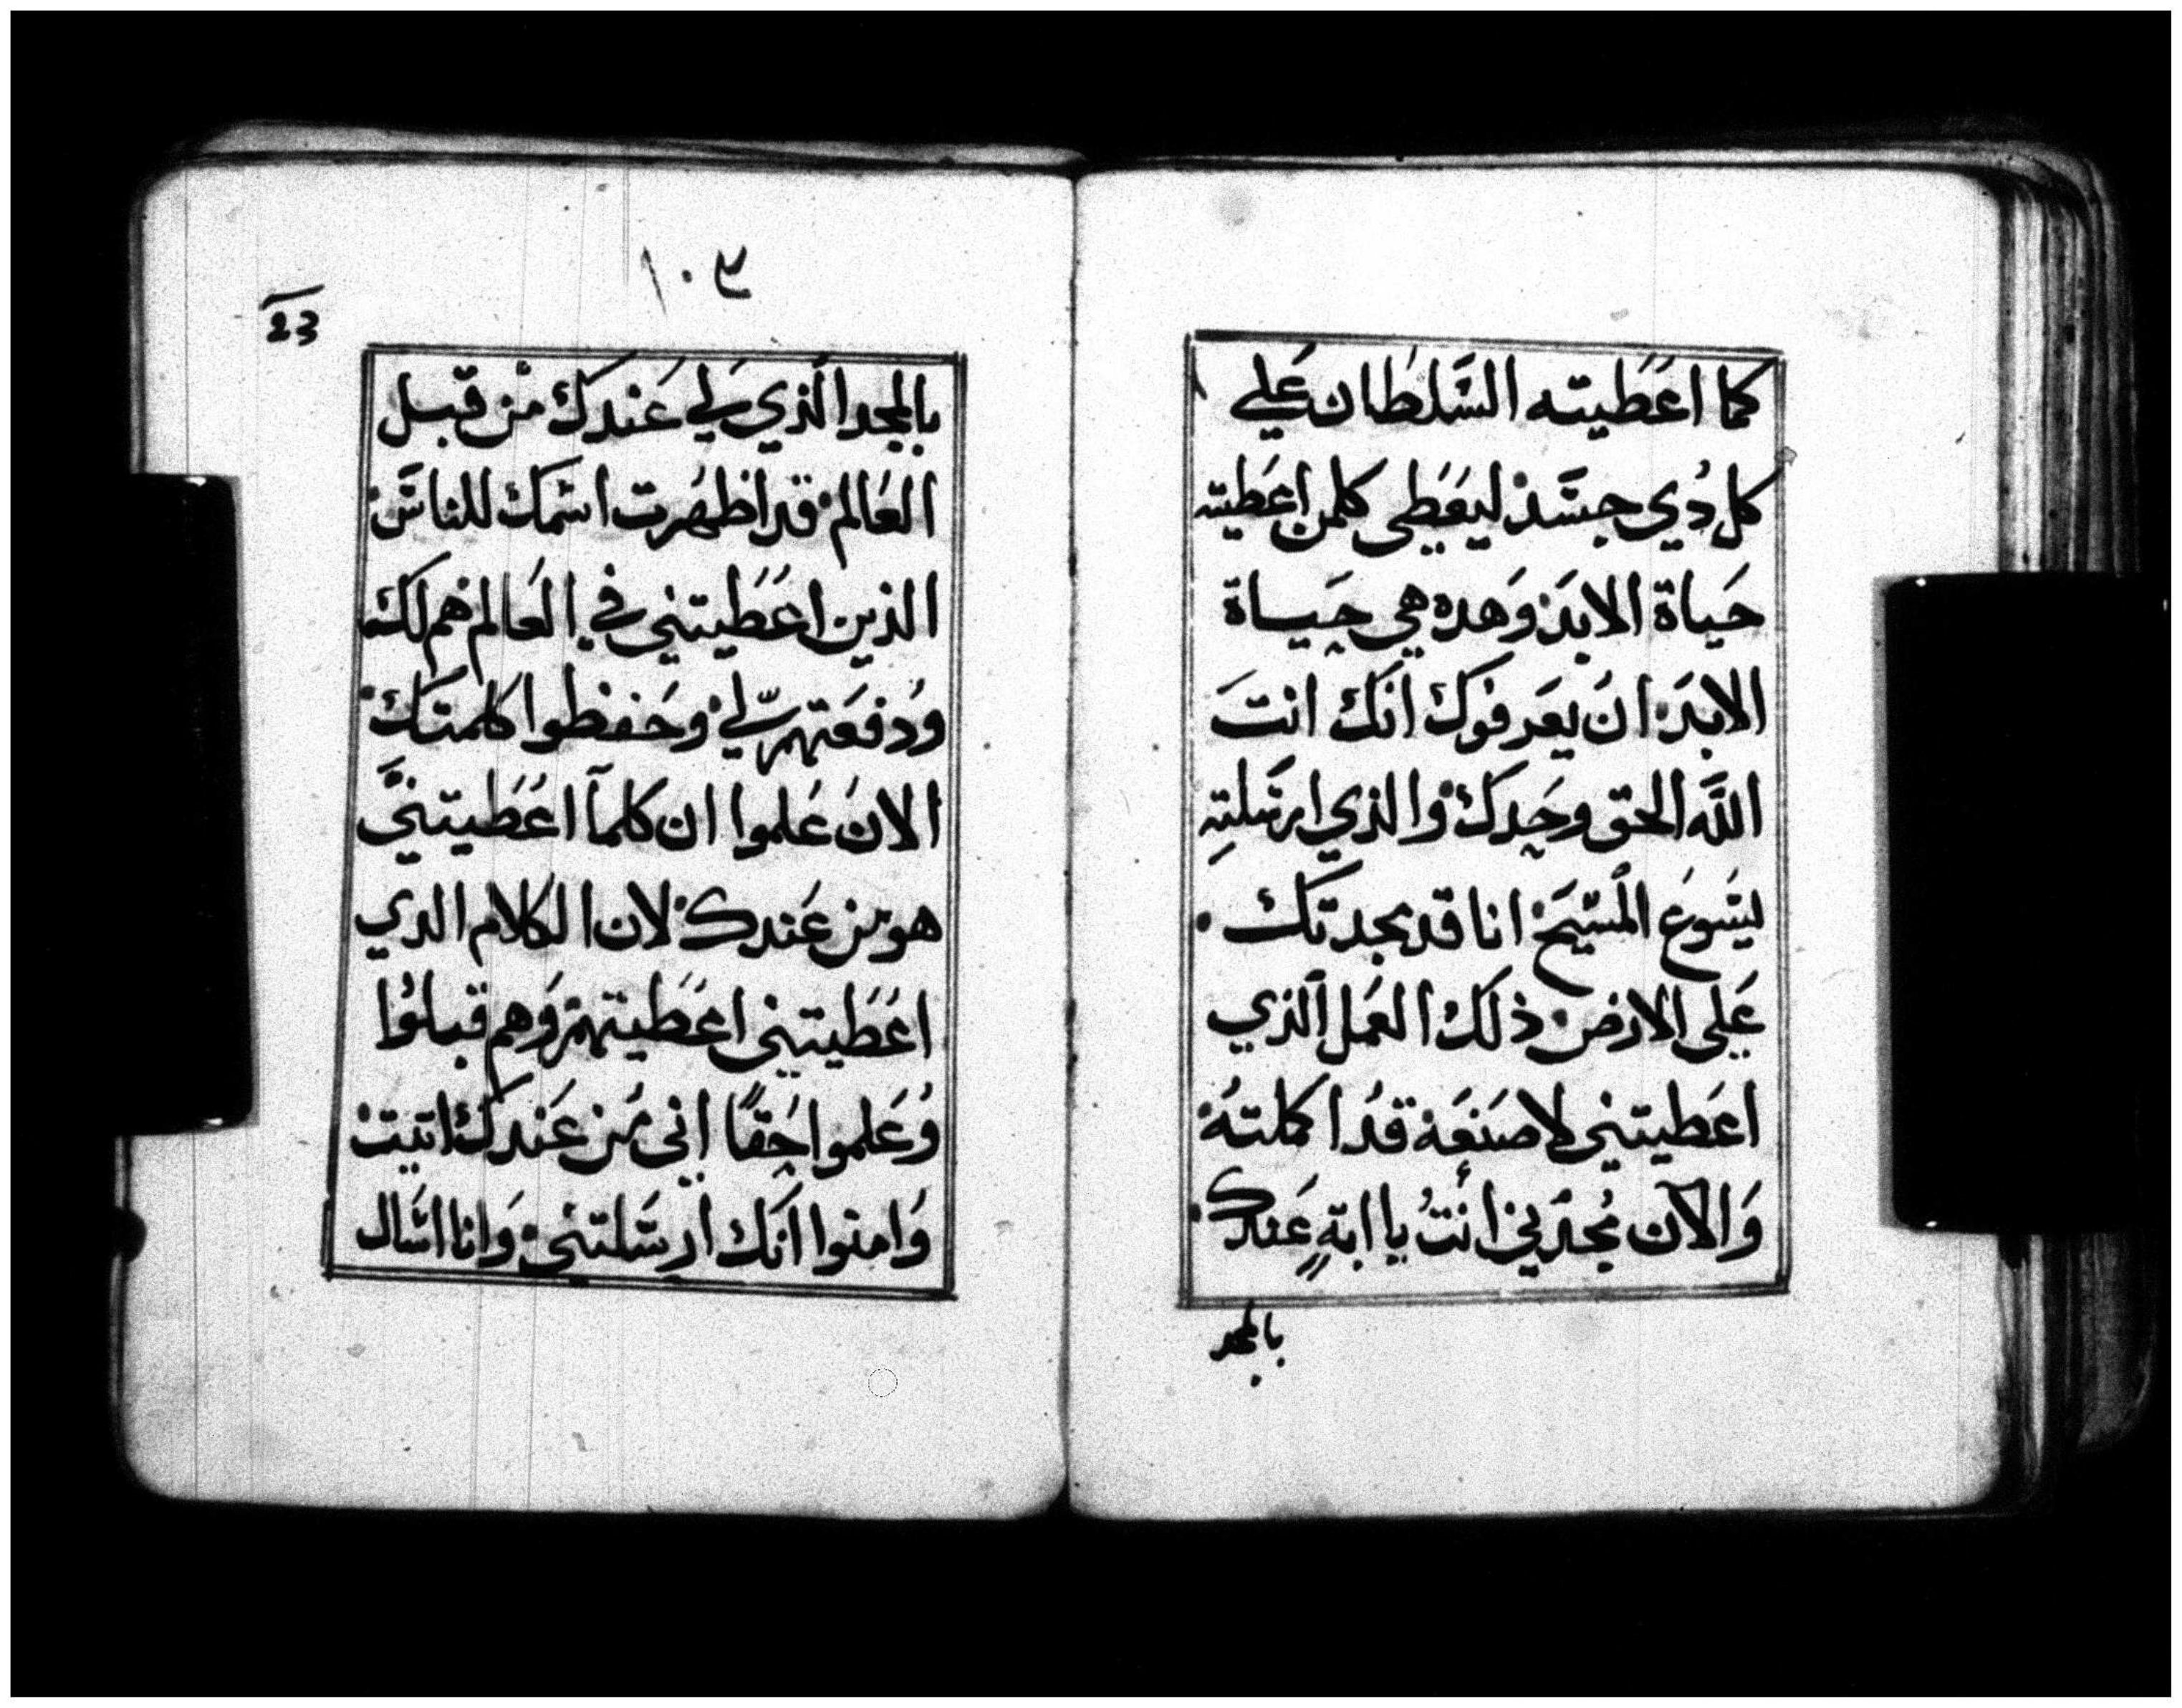 كما اعَطَيته السَّلطَان عَلي
كل دُي جسَّد ليعَطي كلمن اعَطيته
حَياة الابدَ وَهده هي حيساة
الابدَ ان يعَرفوك انَك انتَ
اللَّه الحق وحَدك والذي ارسَلته
ليسَوعَ المسَيحَ انا قد مجدتك
عَلي الارض ذلك العَمل الذي
اعَطيتني لاصنعَه قدُ اكملتهُ
وَالآن مُجدني انتُ يا ابةِ عَندك
بالمجد
١٠٣
23
بالمجد الَذي لي عَندك من قبل
العَالم قد اظهَرت اسَمك للناسَ
الذين اعَطَيتني في العَالم هم لك
ودُفعَتهم لي وحَفظوا كلمتك
الانَ عَلموا ان كلمآ اعَطَيتني
هو من عَندك لان الكلام الدي
اعَطَيتني اعَطَيتهم وَهم قبلوُا
وُعَلموا حَقًا اني من عَندك اتيت
وَامنوا انَك ارسَلتني وَانا اسَال